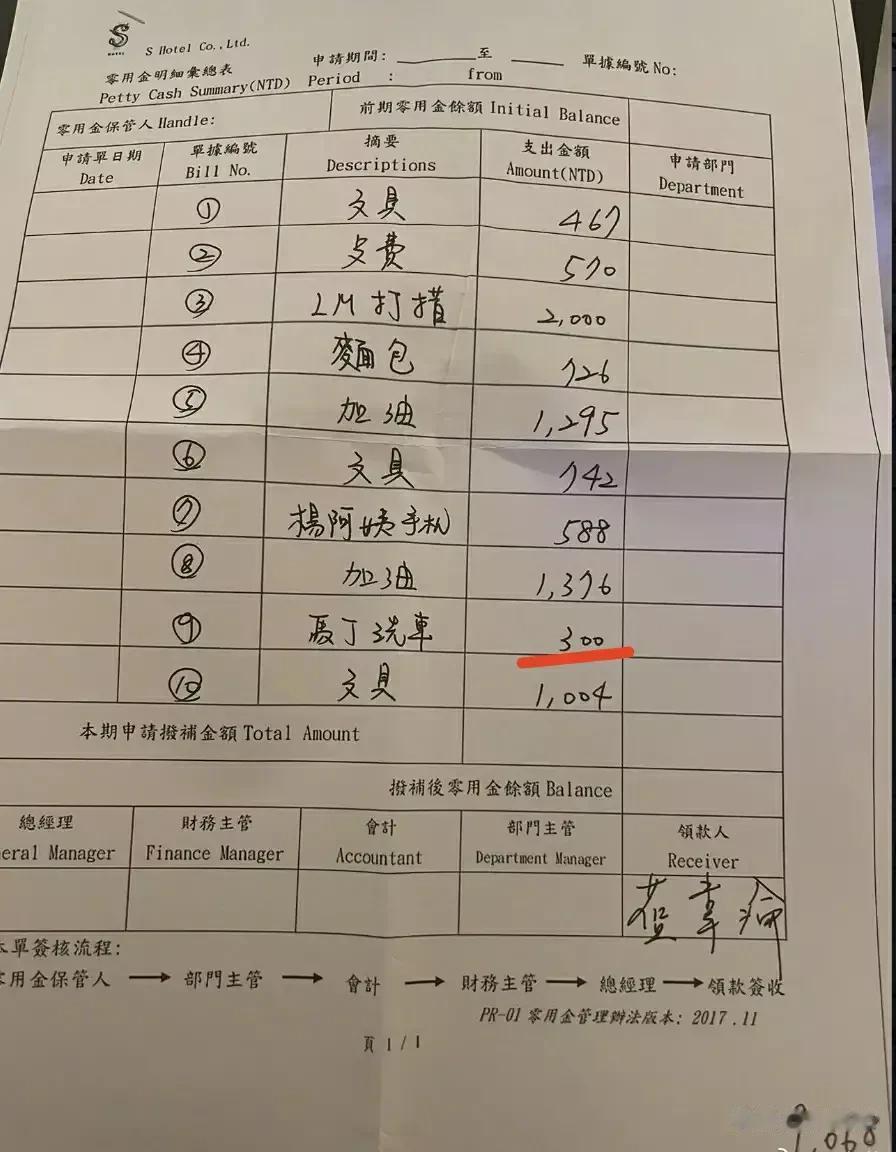 S
HOTEL
S Hotel Co.,Ltd.
零用金明細彙總表 申請期間: 至 單據編號 No:
Petty Cash Summary(NTD) Period : from
零用金保管人 Handle: 前期零用金餘額 Initial Balance
申請單日期 單據編號 摘要 支出金額 申請部門
Date Bill No. Descriptions Amount(NTD) Department
① 文具 467
② 皮費 570
③ LM 打措 2,000
④ 麵包 726
⑤ 加油 1,295
⑥ 文具 742
⑦ 楊阿姨手机 588
⑧ 加油 1,376
⑨ 馬丁洗車 300
⑩ 文具 1,004
本期申請撥補金額 Total Amount
撥補後零用金餘額 Balance
總經理 財務主管 會計 部門主管 領款人
eral Manager Finance Manager Accountant Department Manager Receiver
本單簽核流程:
零用金保管人 → 部門主管 → 會計 → 財務主管 → 總經理 → 領款簽收
PR-01 零用金管理辦法版本: 2017.11
頁 1/1
9,068